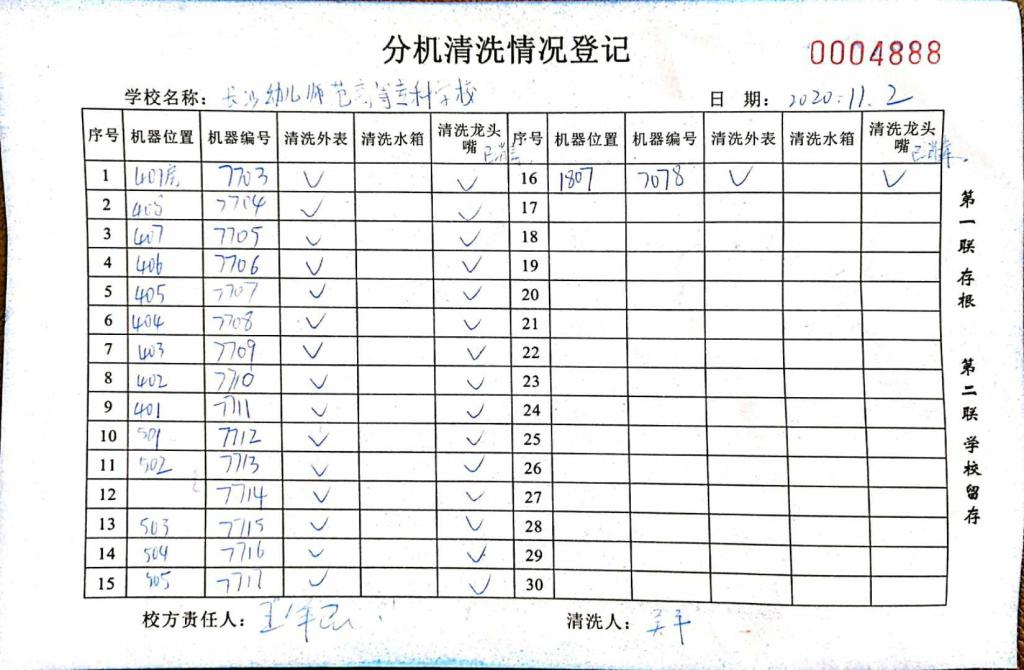 分机清洗情况登记
0004888
学校名称: 长沙幼儿师范高等专科学校 日 期: 2020.11.2
序号 机器位置 机器编号 清洗外表 清洗水箱 清洗龙头嘴 序号 机器位置 机器编号 清洗外表 清洗水箱 清洗龙头嘴
1 7703 ✓ ✓ 16 1807 7078 ✓ ✓
2 408 7704 ✓ ✓ 17
3 407 7705 ✓ ✓ 18
4 406 7706 ✓ ✓ 19
5 405 7707 ✓ ✓ 20
6 404 7708 ✓ ✓ 21
7 403 7709 ✓ ✓ 22
8 402 7710 ✓ ✓ 23
9 401 7711 ✓ ✓ 24
10 501 7712 ✓ ✓ 25
11 502 7713 ✓ ✓ 26
12 7714 ✓ ✓ 27
13 503 7715 ✓ ✓ 28
14 504 7716 ✓ ✓ 29
15 505 7717 ✓ ✓ 30
校方责任人: 清洗人:
第一联 存根
第二联 学校留存